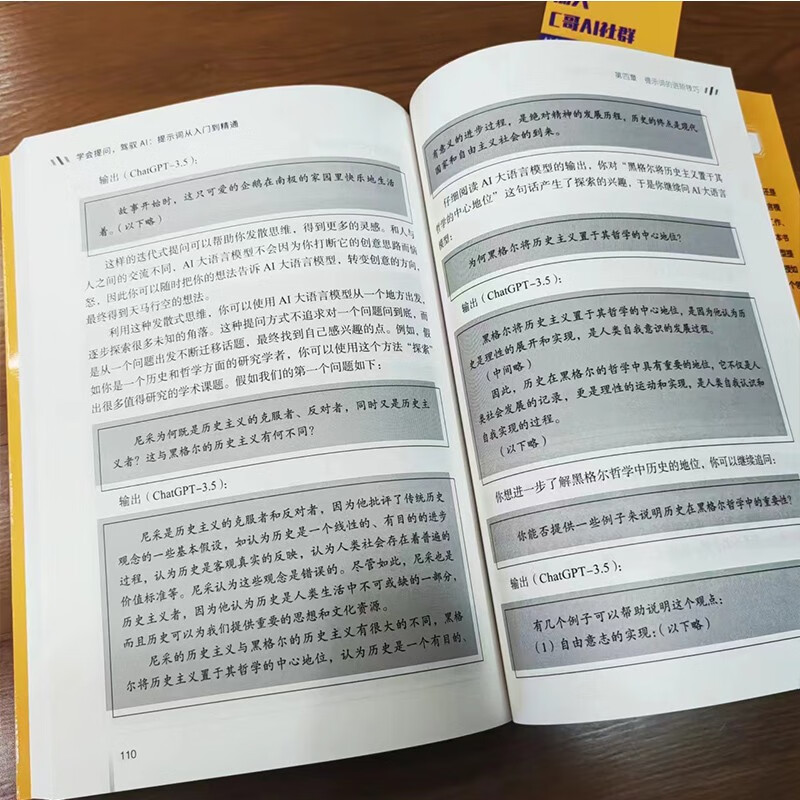 C哥AI社群
学会提问，驾驭 AI：提示词从入门到精通
输出（ChatGPT-3.5）：
故事开始时，这只可爱的企鹅在南极的家园里快乐地生活
着。（以下略）
这样的迭代式提问可以帮助你发散思维，得到更多的灵感。和人与
人之间的交流不同，AI 大语言模型不会因为你打断它的创意思路而恼
怒，因此你可以随时把你的想法告诉 AI 大语言模型，转变创意的方向，
最终得到天马行空的想法。
利用这种发散式思维，你可以使用 AI 大语言模型从一个地方出发，
逐步探索很多未知的角落。这种提问方式不追求对一个问题问到底，而
是从一个问题出发不断迁移话题，最终找到自己感兴趣的点。例如，假
如你是一个历史和哲学方面的研究学者，你可以使用这个方法“探索”
出很多值得研究的学术课题。假如我们的第一个问题如下：
尼采为何既是历史主义的克服者、反对者，同时又是历史主
义者？这与黑格尔的历史主义有何不同？
输出（ChatGPT-3.5）：
尼采是历史主义的克服者和反对者，因为他批评了传统历史
观念的一些基本假设，如认为历史是一个线性的、有目的的进步
过程，认为历史是客观真实的反映，认为人类社会存在着普遍的
价值标准等。尼采认为这些观念是错误的。尽管如此，尼采也是
历史主义者，因为他认为历史是人类生活中不可或缺的一部分，
而且历史可以为我们提供重要的思想和文化资源。
尼采的历史主义与黑格尔的历史主义有很大的不同，黑格
尔将历史主义置于其哲学的中心地位，认为历史是一个有目的、
110
第四章 提示词的进阶技巧
有意义的进步过程，是绝对精神的发展历程，历史的终点是现代
国家和自由主义社会的到来。
仔细阅读 AI 大语言模型的输出，你对“黑格尔将历史主义置于其
哲学的中心地位”这句话产生了探索的兴趣，于是你继续问 AI 大语言
模型：
为何黑格尔将历史主义置于其哲学的中心地位？
输出（ChatGPT-3.5）：
黑格尔将历史主义置于其哲学的中心地位，是因为他认为历
史是理性的展开和实现，是人类自我意识的发展过程。
（中间略）
因此，历史在黑格尔的哲学中具有重要的地位，它不仅是人
类社会发展的记录，更是理性的运动和实现，是人类自我认识和
自我实现的过程。
（以下略）
你想进一步了解黑格尔哲学中历史的地位，你可以继续追问：
你能否提供一些例子来说明历史在黑格尔哲学中的重要性？
输出（ChatGPT-3.5）：
有几个例子可以帮助说明这个观点：
（1）自由意志的实现：（以下略）